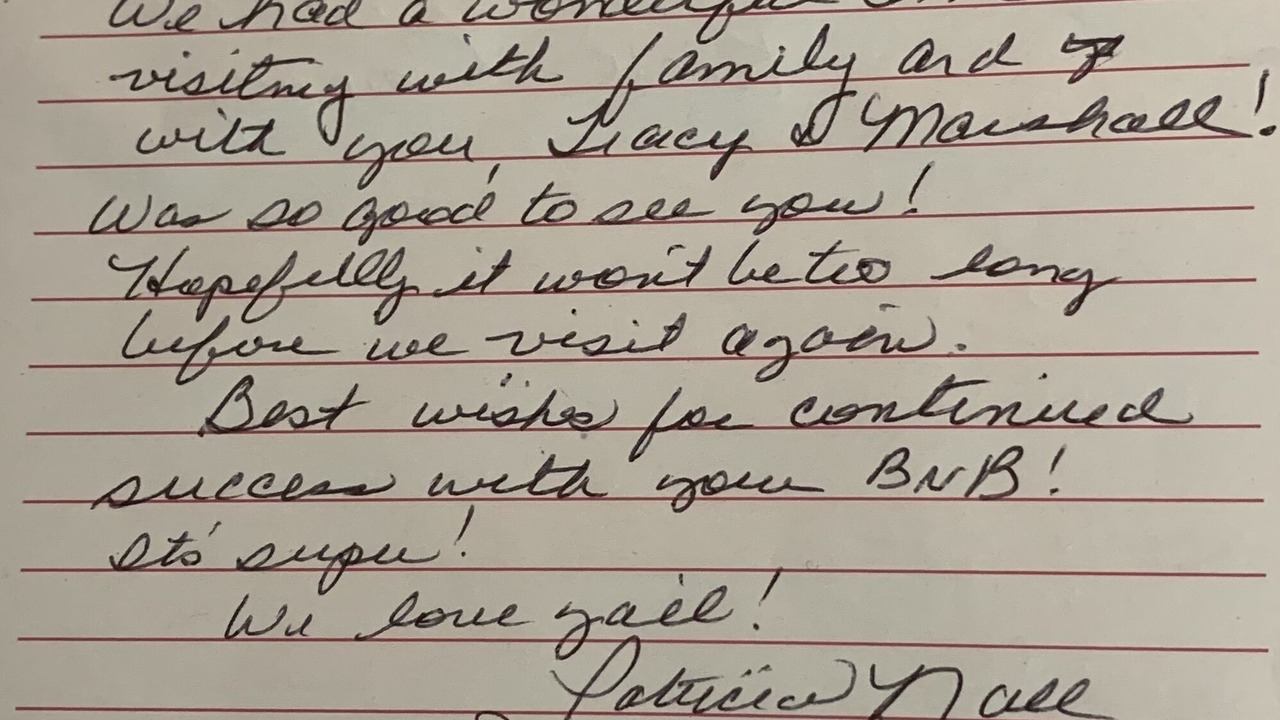 We had a wonderful
visiting with family and
with you, Tracy & Marshall!
Was so good to see you!
Hopefully it won't be too long
before we visit again.
Best wishes for continued
success with your BnB!
It's super!
We love ya'll!
Patricia Nall